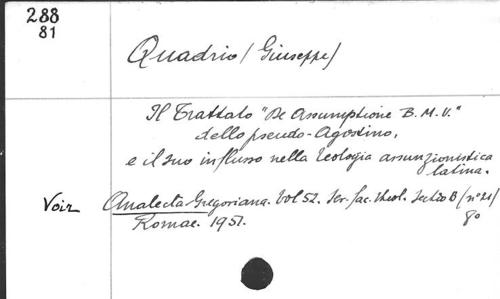 288
81
Quadrio (Giuseppe)
Il Trattato "De Assumptione B. M. V."
dello pseudo-Agostino,
e il suo influsso nella teologia assunzionistica
latina.
Voir Analecta Gregoriana. Vol 52. Ser. fac. theol. Sectio B (n° 21)
Romae. 1951. 8°